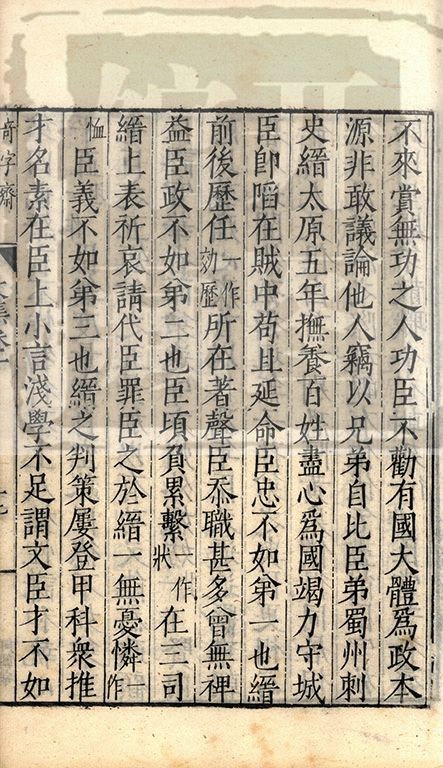 不來賞無功之人功臣不勸有國大體爲政本
源非敢議論他人竊以兄弟自比臣弟蜀州刺
史縉太原五年撫養百姓盡心爲國竭力守城
臣卽陷在賊中苟且延命臣忠不如弟一也縉
前後歷任一作効歷所在著聲臣忝職甚多曾無裨
益臣政不如弟二也臣頃負累繫一作狀在三司
縉上表祈哀請代臣罪臣之於縉一無憂憐一作
恤臣義不如弟三也縉之判策屢登甲科衆推
才名素在臣上小言淺學不足謂文臣才不如
奇字齋
文集卷